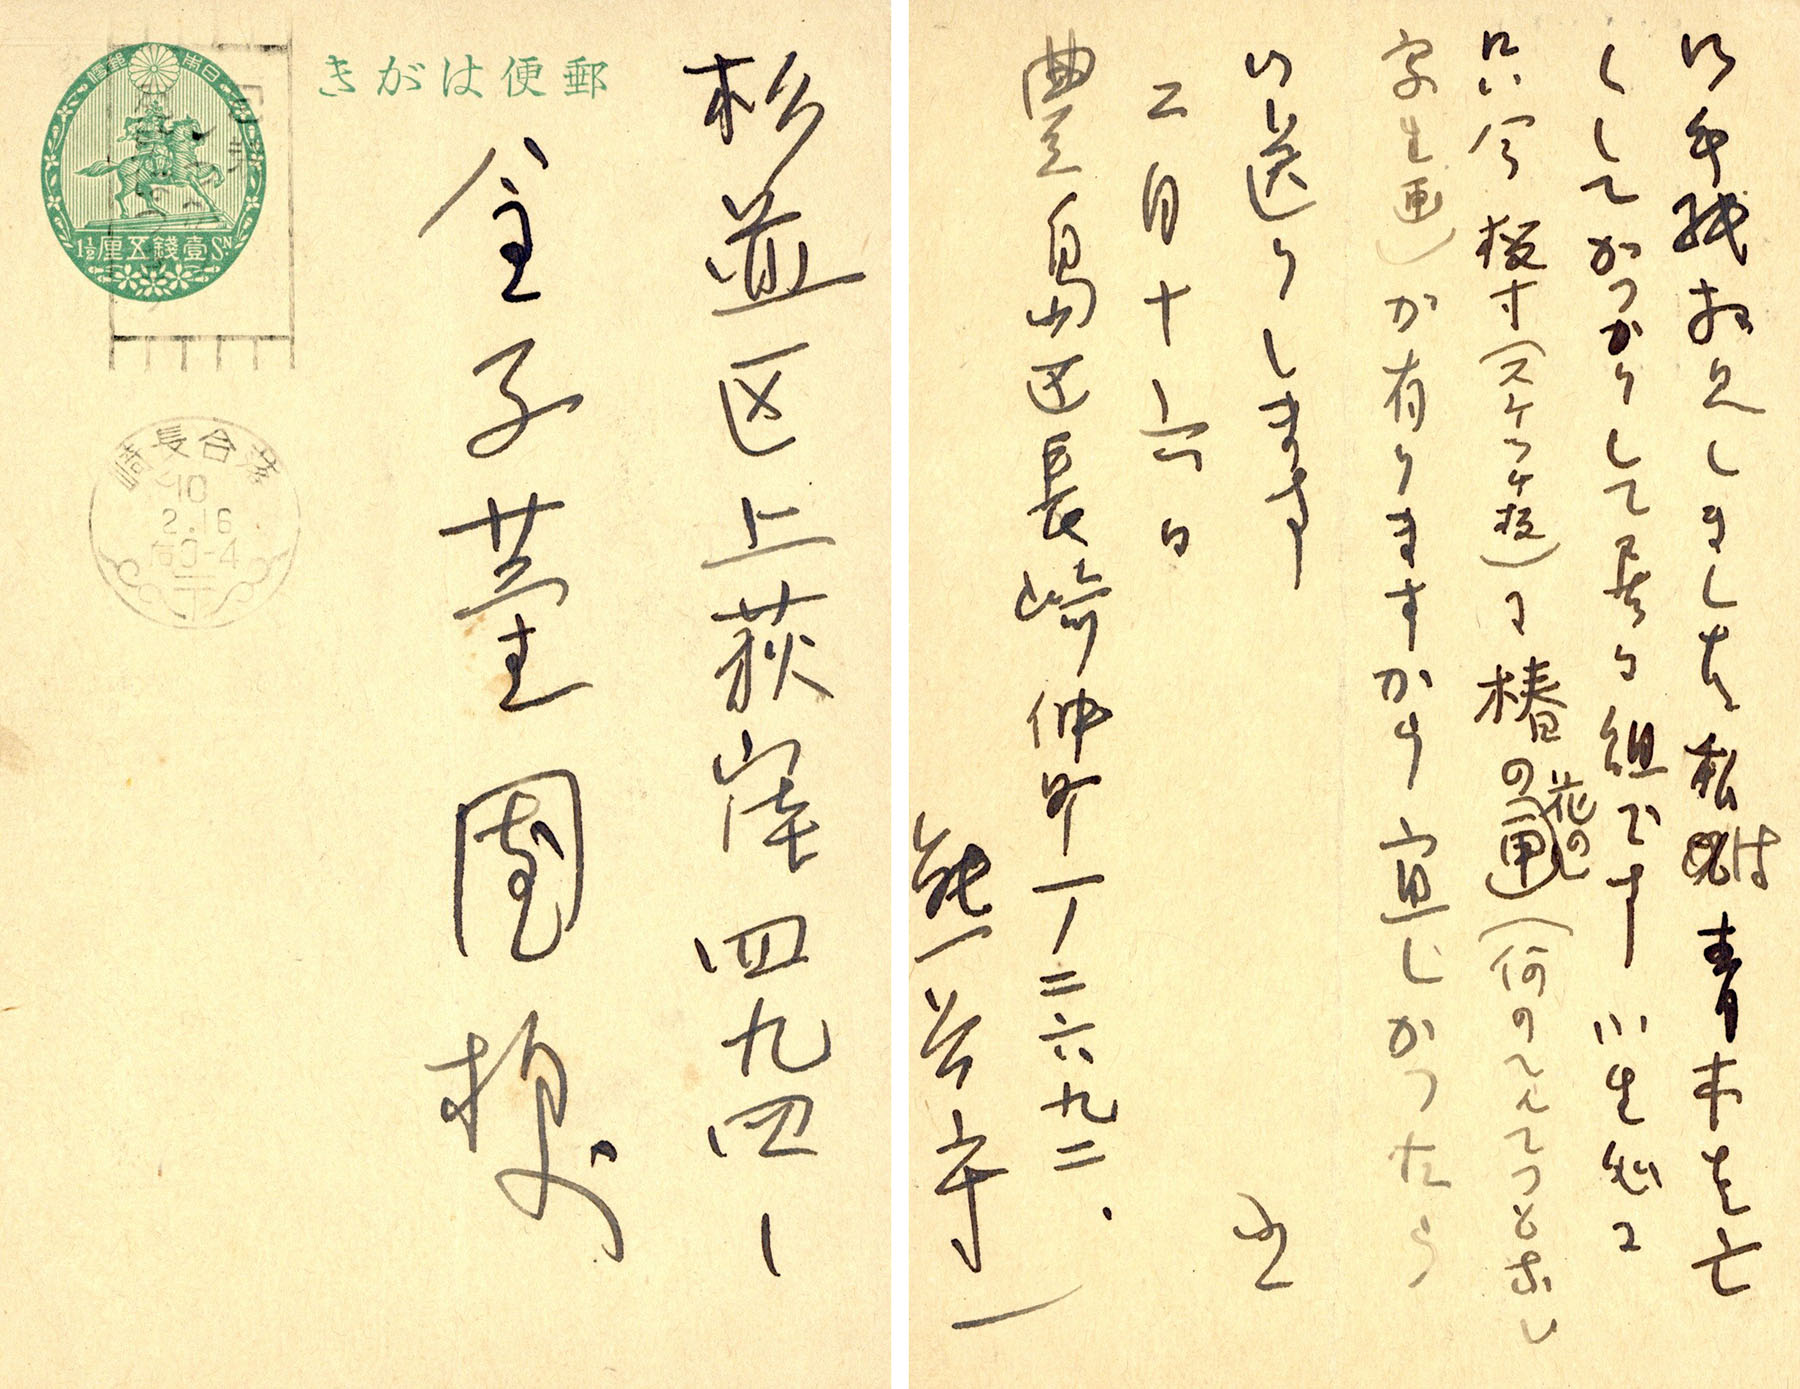 郵便はがき
日本郵便
壹錢五厘
1½ Sn.
落合長崎
10
2.16
后0-4
杉並区上荻窪四九四ー
金子薹園様
御手紙お見しました私は青木を亡
くしてがつかりして居る組です 小生処に
只今板寸(スケッチ板)に椿の花の画(何のへんてつもない
写生画)が有りますから宜しかつたら
御送りします
二月十六日
豊島区長崎仲町一ノ二六九二.
熊谷守一